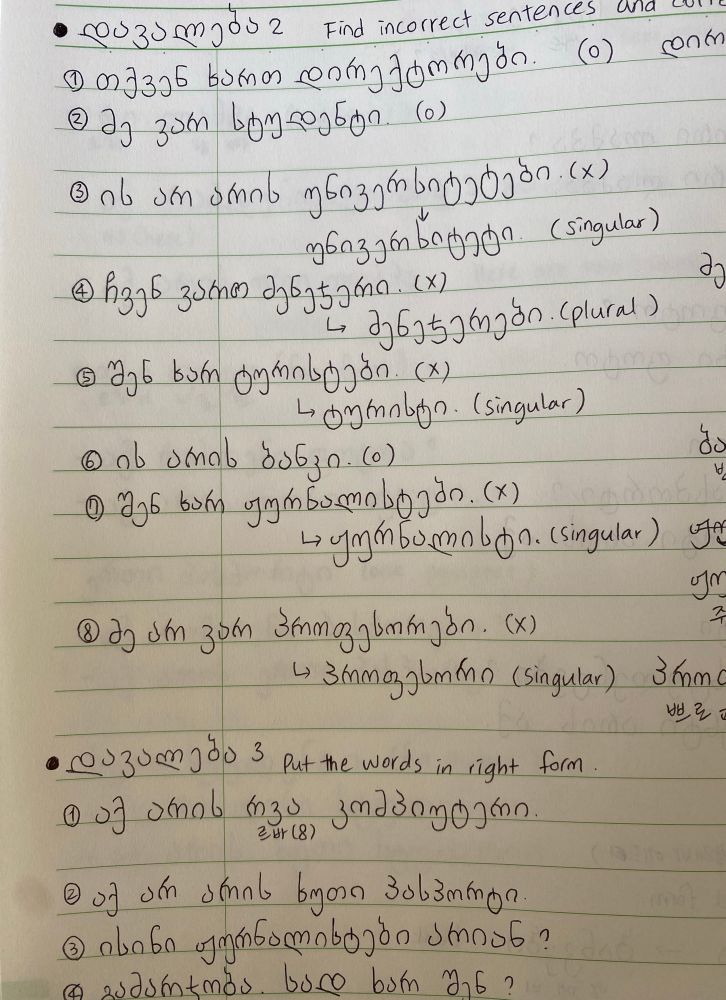 • დავალება 2 Find incorrect sentences and
① თქვენ ხართ დირექტორები. (o)
② მე ვარ სტუდენტი. (o)
③ ის არ არის უნივერსიტეტები. (x)
↓
უნივერსიტეტი. (singular)
④ ჩვენ ვართ მენეჯერი. (x)
მე
↳ მენეჯერები. (plural)
⑤ შენ ხარ ტურისტები. (x)
↳ ტურისტი. (singular)
⑥ ის არის ბანკი. (o)
ბა
⑦ შენ ხარ ჟურნალისტები. (x)
↳ ჟურნალისტი. (singular)
⑧ მე არ ვარ პროფესორები. (x)
주
↳ პროფესორი (singular)
• დავალება 3 Put the words in right form.
① აქ არის რვა კომპიუტერი.
르바 (8)
② აქ არ არის ხუთი პასპორტი.
③ ისინი ჟურნალისტები არიან?
④ გამარჯობა. სად ხარ შენ?